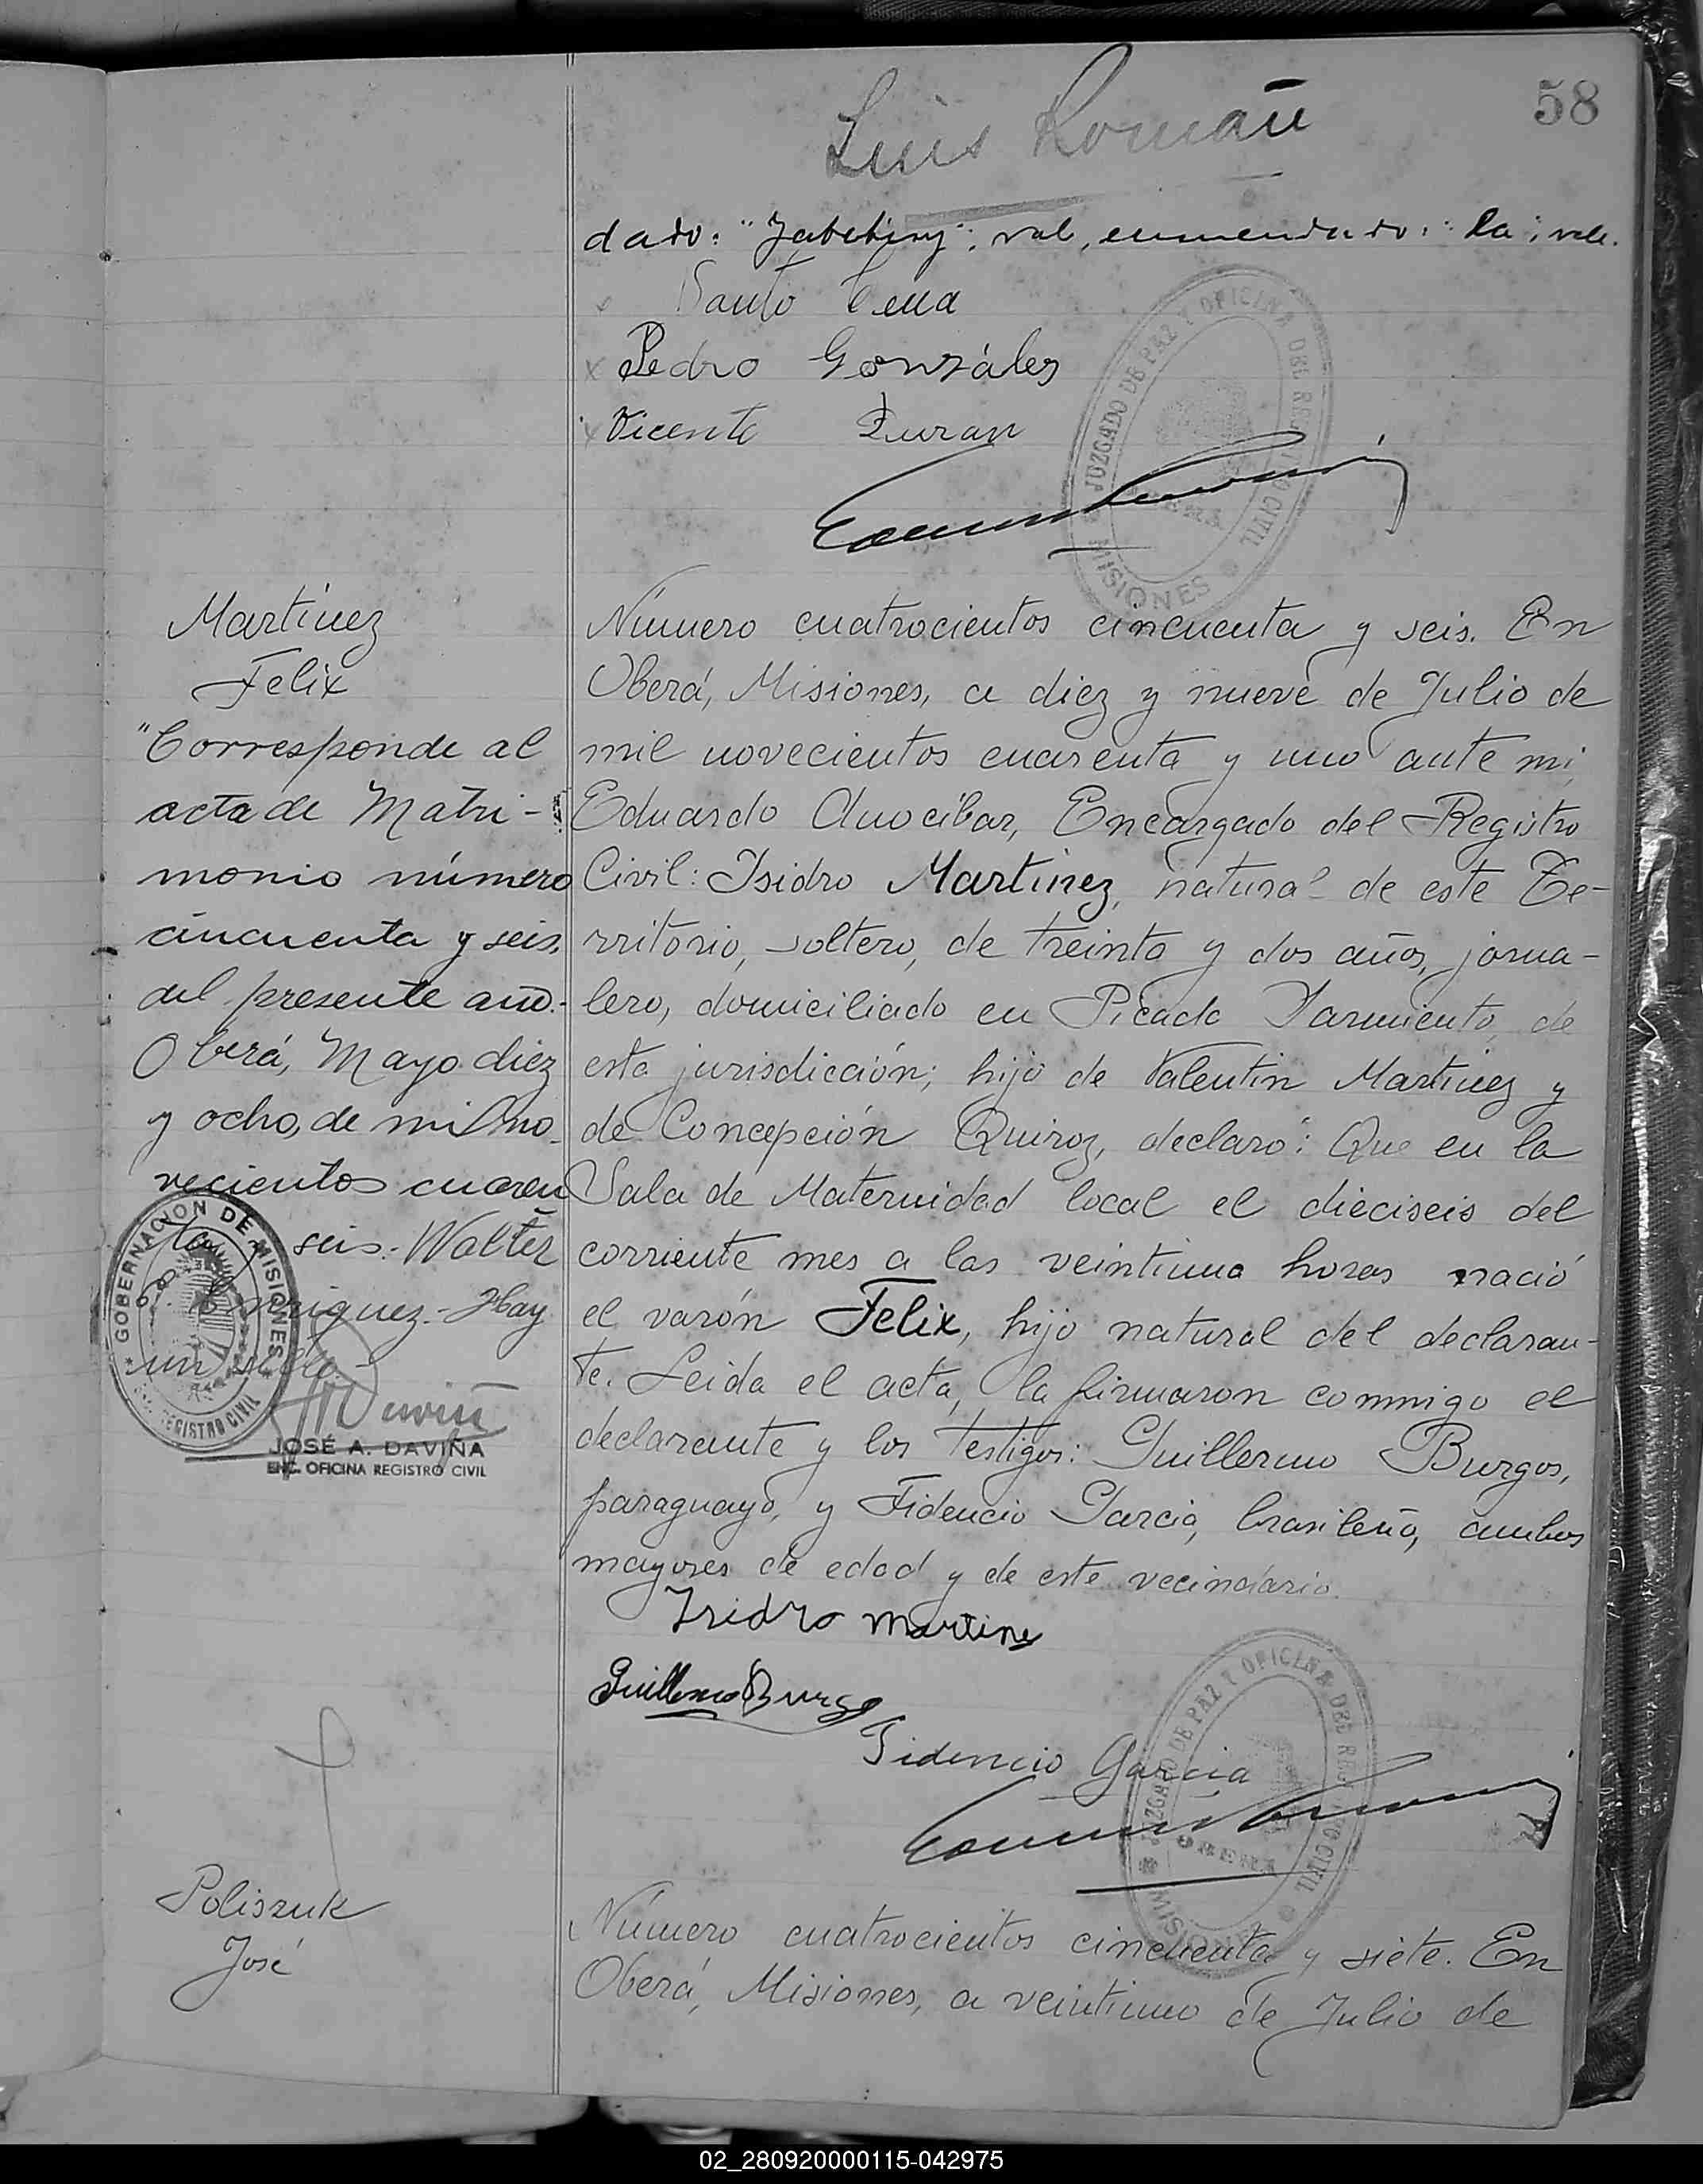 58
Luis Román
dado: "Yabebiry"; vale, enmendado: "la"; vale.
Santo
Pedro Gonzáles
Vicente Duran
JUZGADO DE PAZ Y OFICINA DEL REGISTRO CIVIL
OBERA
MISIONES
Martínez
Felix
"Corresponde al
acta de Matri-
monio número
cincuenta y seis,
del presente año.-
Oberá, Mayo diez
y ocho, de mil no-
vecientos cuaren
ta y seis.- Walter
Enriquez.- Hay
un sello.-
GOBERNACION DE MISIONES
REGISTRO CIVIL
JOSÉ A. DAVIÑA
ENC. OFICINA REGISTRO CIVIL
Número cuatrocientos cincuenta y seis. En
Oberá, Misiones, a diez y nueve de Julio de
mil novecientos cuarenta y uno ante mi,
Eduardo Anocibar, Encargado del Registro
Civil: Isidro Martínez, natural de este Te-
rritorio, soltero, de treinta y dos años, jorna-
lero, domiciliado en Picada Sarmiento, de
esta jurisdicción; hijo de Valentin Martinez y
de Concepción Quiroz, declaró: Que en la
Sala de Maternidad local el dieciseis del
corriente mes a las veintiuna horas nació
el varón Felix, hijo natural del declaran-
te. Leida el acta, la firmaron conmigo el
declarante y los testigos: Guillermo Burgos,
paraguayo, y Fidencio Garcia, brasileño, ambos
mayores de edad y de este vecindario.
Isidro Martines
Guillermo Burgo
Fidencio Garcia
JUZGADO DE PAZ Y OFICINA DEL REGISTRO CIVIL
OBERA
MISIONES
Poliszuk
José
Número cuatrocientos cincuenta y siete. En
Oberá, Misiones, a veintiuno de Julio de
02_280920000115-042975